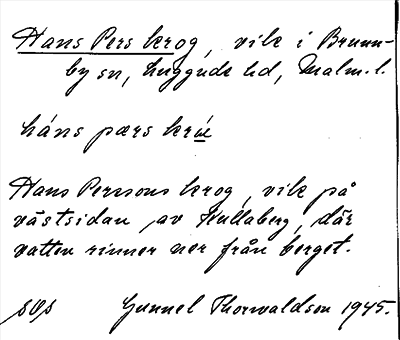 Hans Pers krog, vik i Brunn-
by sn, Luggude hd, Malm. l.
háns pærs
Hans Perssons krog, vik på
västsidan av Kullaberg, där
vatten rinner ner från berget.
Gunnel Thorwaldson 1945.